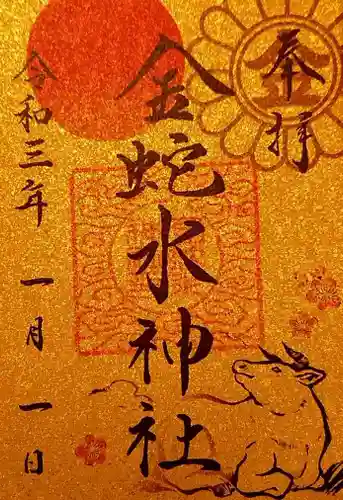 奉拝
金蛇水神社
令和三年 一月 一日